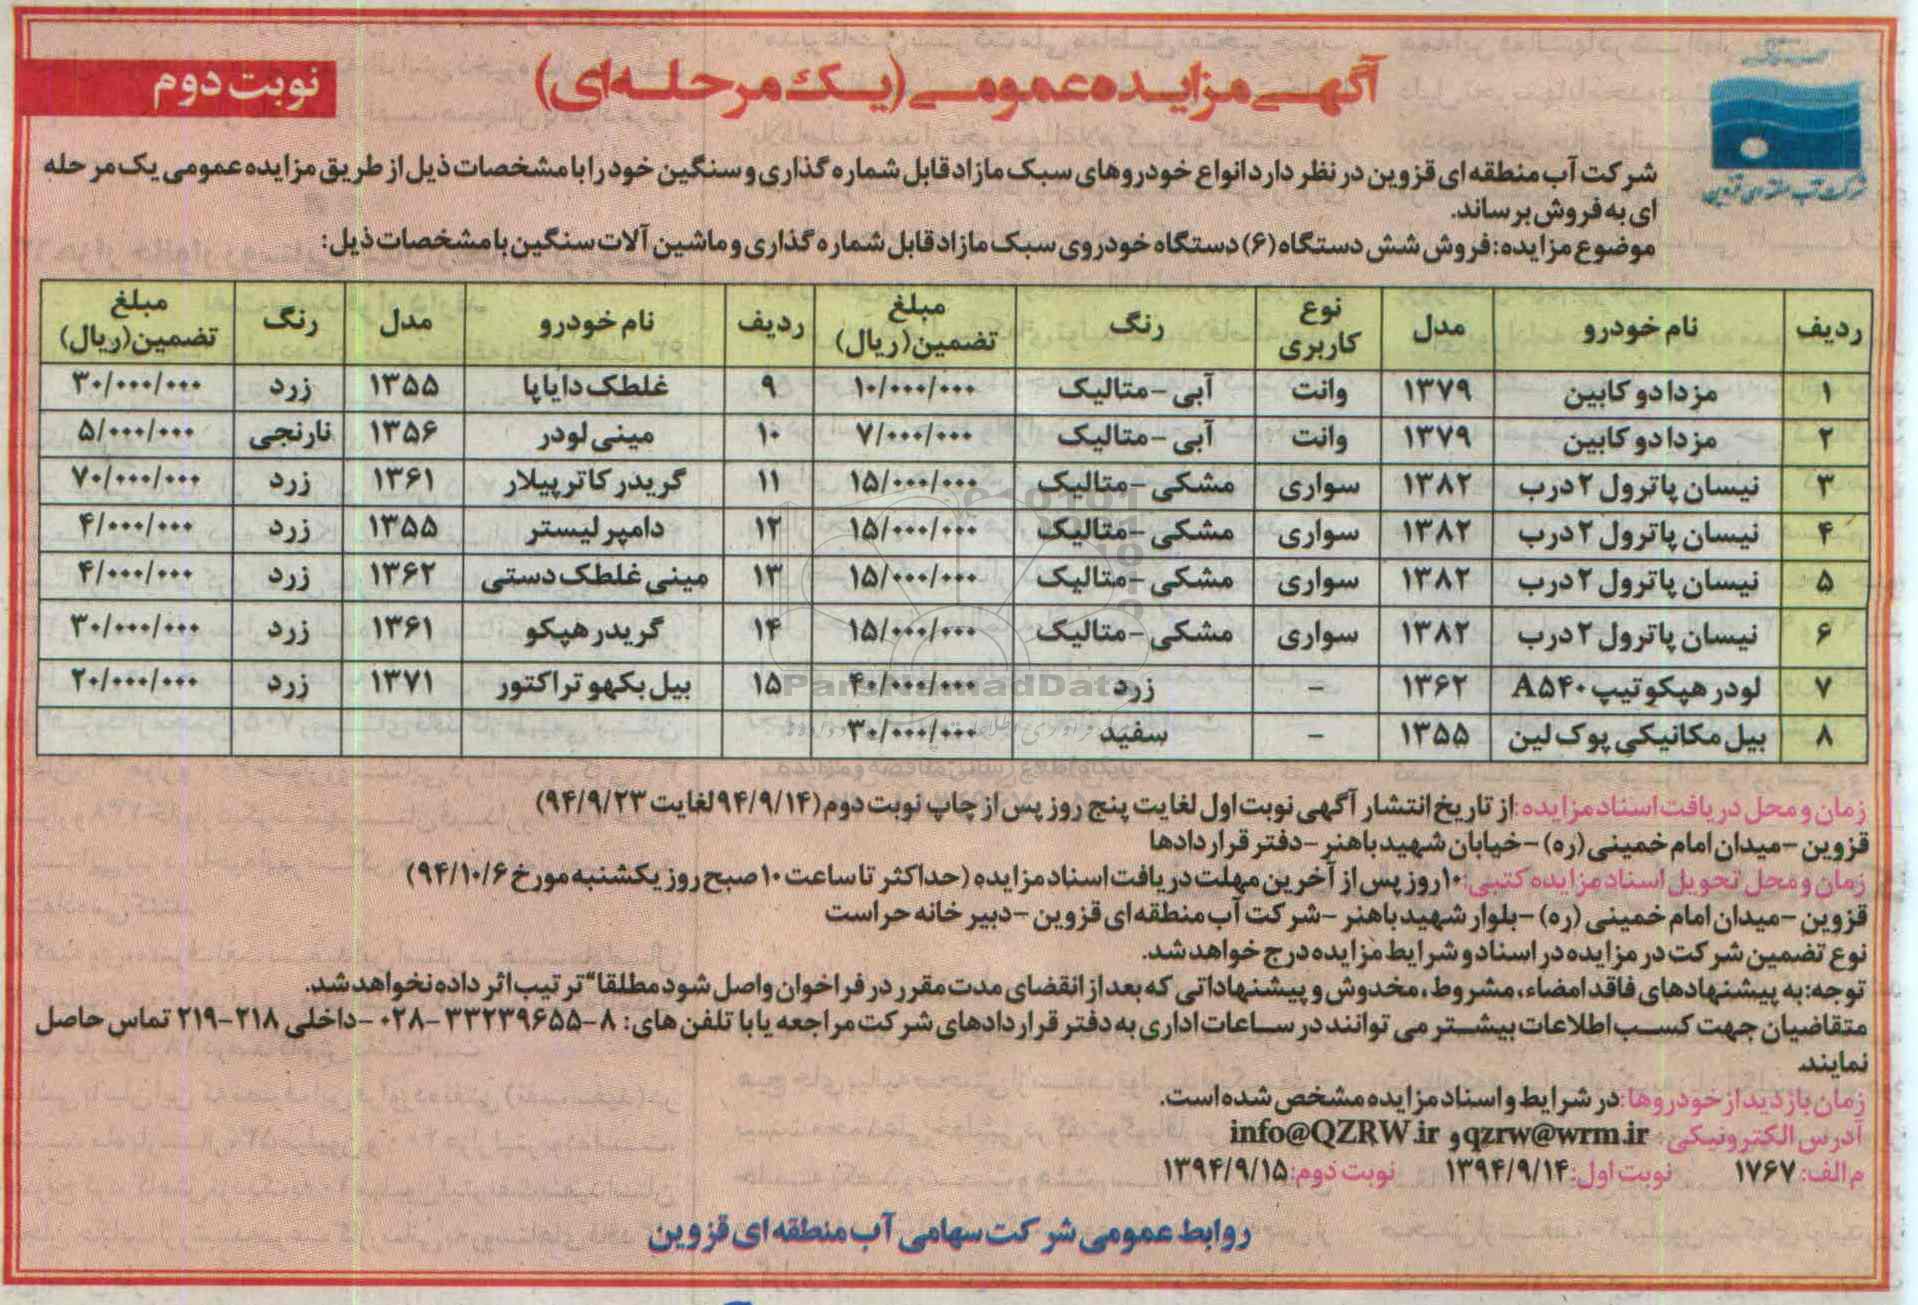 آگهی مزایده عمومی (یک مرحله‌ای)
نوبت دوم
شرکت آب منطقه ای قزوین
شرکت آب منطقه ای قزوین در نظر دارد انواع خودروهای سبک مازاد قابل شماره گذاری و سنگین خود را با مشخصات ذیل از طریق مزایده عمومی یک مرحله
ای به فروش برساند.
موضوع مزایده: فروش شش دستگاه (۶) دستگاه خودروی سبک مازاد قابل شماره گذاری و ماشین آلات سنگین با مشخصات ذیل:
ردیف نام خودرو مدل نوع کاربری رنگ مبلغ تضمین(ریال) ردیف نام خودرو مدل رنگ مبلغ تضمین(ریال)
۱ مزدا دو کابین ۱۳۷۹ وانت آبی -متالیک ۱۰/۰۰۰/۰۰۰ ۹ غلطک دایاپا ۱۳۵۵ زرد ۳۰/۰۰۰/۰۰۰
۲ مزدا دو کابین ۱۳۷۹ وانت آبی -متالیک ۷/۰۰۰/۰۰۰ ۱۰ مینی لودر ۱۳۵۶ نارنجی ۵/۰۰۰/۰۰۰
۳ نیسان پاترول ۲درب ۱۳۸۲ سواری مشکی -متالیک ۱۵/۰۰۰/۰۰۰ ۱۱ گریدر کاترپیلار ۱۳۶۱ زرد ۷۰/۰۰۰/۰۰۰
۴ نیسان پاترول ۲درب ۱۳۸۲ سواری مشکی -متالیک ۱۵/۰۰۰/۰۰۰ ۱۲ دامپر لیستر ۱۳۵۵ زرد ۴/۰۰۰/۰۰۰
۵ نیسان پاترول ۲درب ۱۳۸۲ سواری مشکی -متالیک ۱۵/۰۰۰/۰۰۰ ۱۳ مینی غلطک دستی ۱۳۶۲ زرد ۴/۰۰۰/۰۰۰
۶ نیسان پاترول ۲درب ۱۳۸۲ سواری مشکی -متالیک ۱۵/۰۰۰/۰۰۰ ۱۴ گریدر هپکو ۱۳۶۱ زرد ۳۰/۰۰۰/۰۰۰
۷ لودر هپکو تیپ A۵۴۰ ۱۳۶۲ - زرد ۴۰/۰۰۰/۰۰۰ ۱۵ بیل بکهو تراکتور ۱۳۷۱ زرد ۲۰/۰۰۰/۰۰۰
۸ بیل مکانیکی پوک لین ۱۳۵۵ - سفید ۳۰/۰۰۰/۰۰۰
زمان و محل دریافت اسناد مزایده: از تاریخ انتشار آگهی نوبت اول لغایت پنج روز پس از چاپ نوبت دوم (۹۴/۹/۱۴ لغایت ۹۴/۹/۲۳)
قزوین -میدان امام خمینی (ره) -خیابان شهید باهنر -دفتر قراردادها
زمان و محل تحویل اسناد مزایده کتبی: ۱۰روز پس از آخرین مهلت دریافت اسناد مزایده (حداکثر تا ساعت ۱۰ صبح روز یکشنبه مورخ ۹۴/۱۰/۶)
قزوین -میدان امام خمینی (ره) -بلوار شهید باهنر -شرکت آب منطقه ای قزوین -دبیرخانه حراست
نوع تضمین شرکت در مزایده در اسناد و شرایط مزایده درج خواهد شد.
توجه: به پیشنهادهای فاقد امضاء، مشروط، مخدوش و پیشنهاداتی که بعد از انقضای مدت مقرر در فراخوان واصل شود مطلقا" ترتیب اثر داده نخواهد شد.
متقاضیان جهت کسب اطلاعات بیشتر می توانند در ساعات اداری به دفتر قراردادهای شرکت مراجعه یا با تلفن های: ۸-۳۳۲۳۹۶۵۵-۰۲۸ -داخلی ۲۱۸-۲۱۹ تماس حاصل
نمایند.
زمان بازدید از خودروها: در شرایط و اسناد مزایده مشخص شده است.
آدرس الکترونیکی: qzrw@wrm.ir و info@QZRW.ir
م الف: ۱۷۶۷ نوبت اول: ۱۳۹۴/۹/۱۴ نوبت دوم: ۱۳۹۴/۹/۱۵
روابط عمومی شرکت سهامی آب منطقه ای قزوین